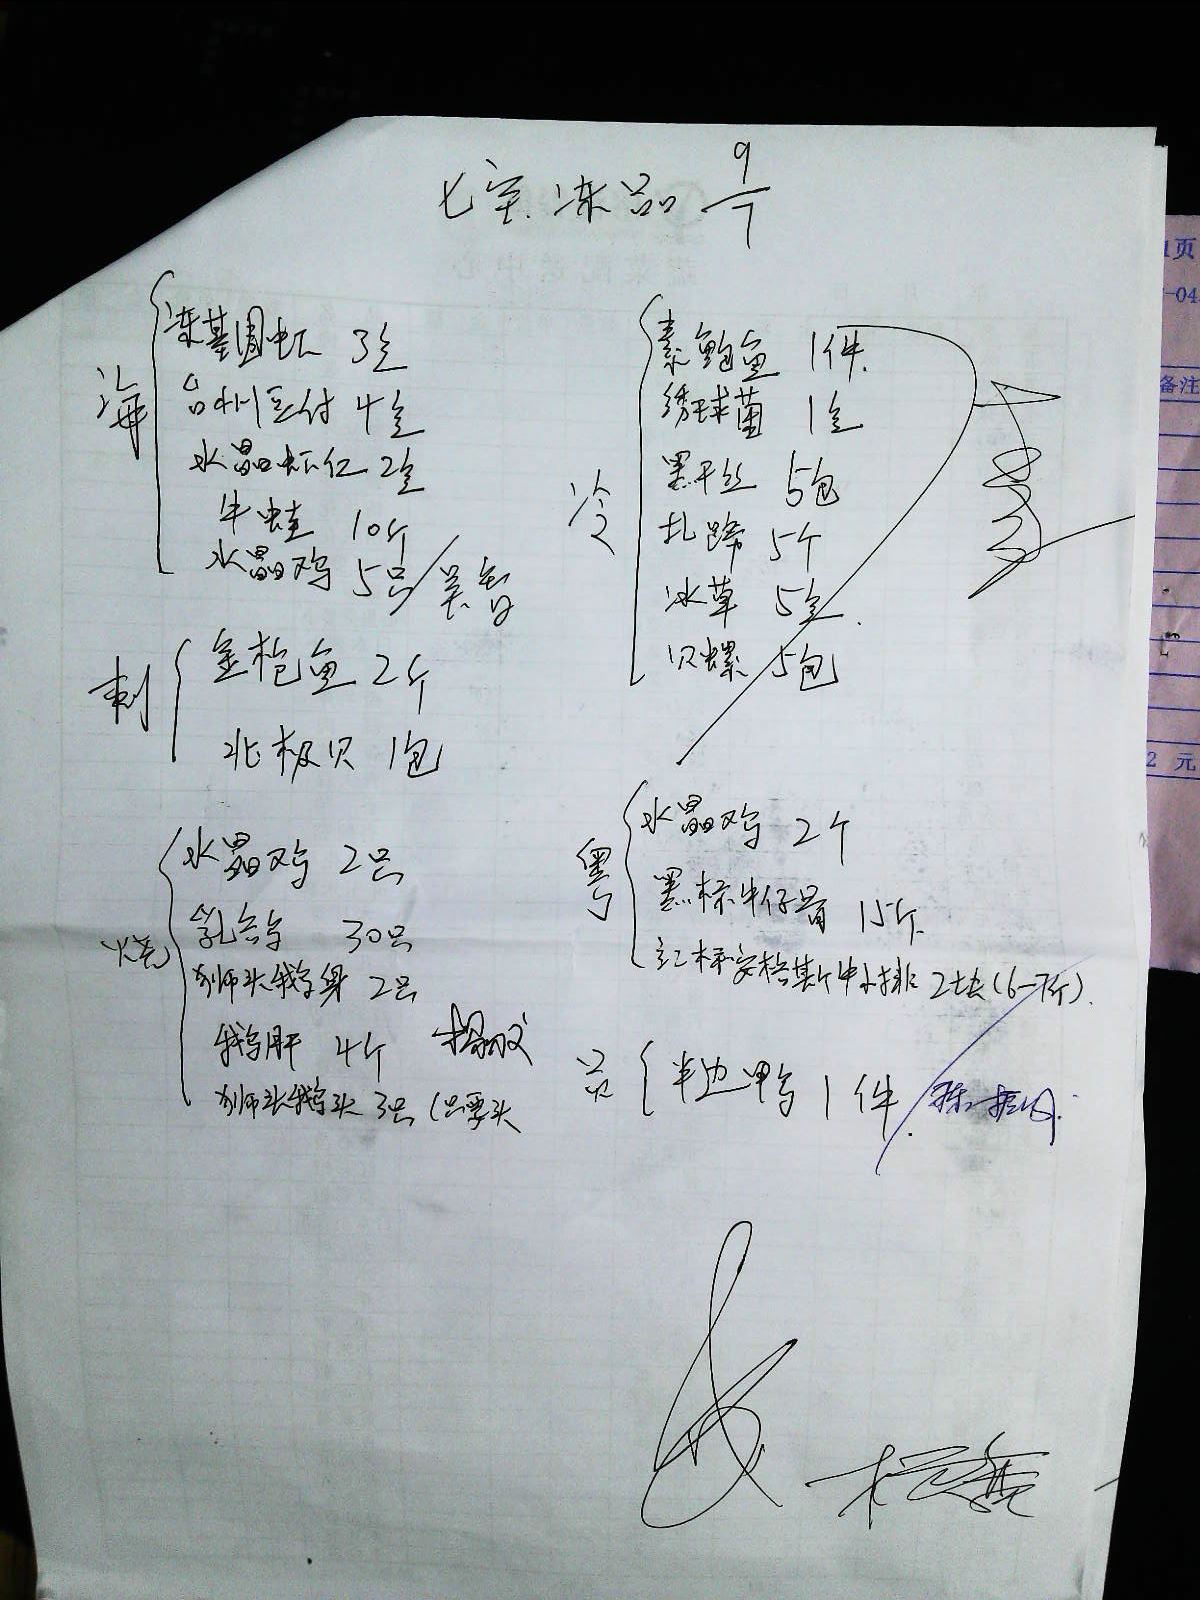 七宝.冻品 9/7
海
冻基围虾 3包
台州豆付 4包
水晶虾仁 2包
牛蛙 10斤
水晶鸡 5只
刺
金枪鱼 2斤
北极贝 1包
烧
水晶鸡 2只
乳鸽 30只
狮头鹅身 2只
鹅肝 4斤
狮头鹅头 3只
冷
素鲍鱼 1件.
绣球菌 1包
黑干丝 5包
扎蹄 5个
冰草 5包.
贝螺 5包
粤
水晶鸡 2个
黑标牛仔骨 15斤.
红标安格斯牛小排 2块(6-7斤).
品
半边鸭 1件.
1页
-04
备注
2 元